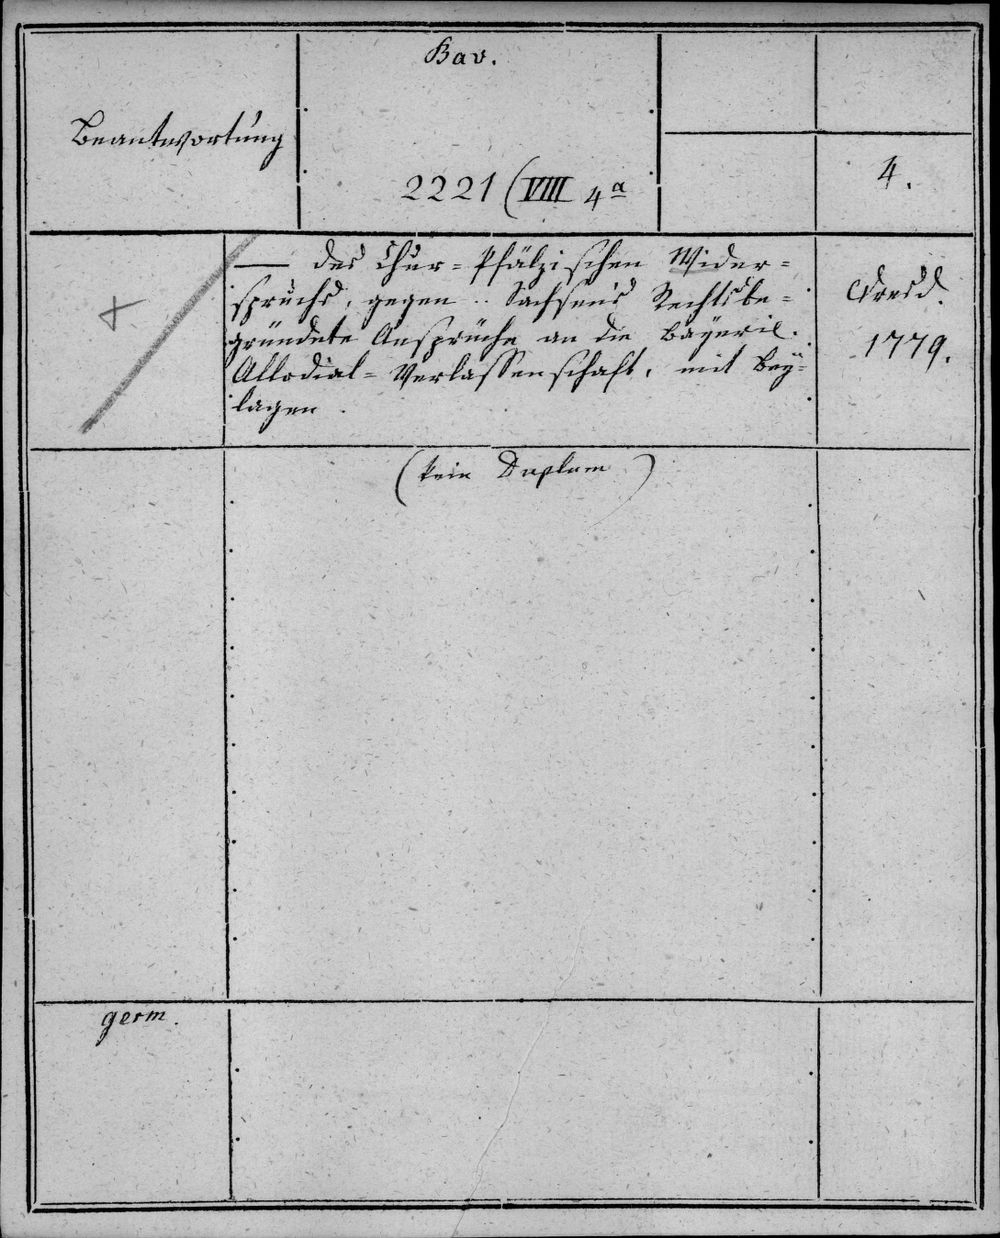 Bav.
Beantwortung
2221 (VIII 4a
4.
— des Chur-Pfälzischen Wider-
spruchs, gegen .. Sachsens Rechtsbe-
gründete Ansprüche an die bayeris.
Allodial-Verlassenschaft, mit Bey-
lagen.
Dresd.
1779.
+
(kein Duplum)
germ.